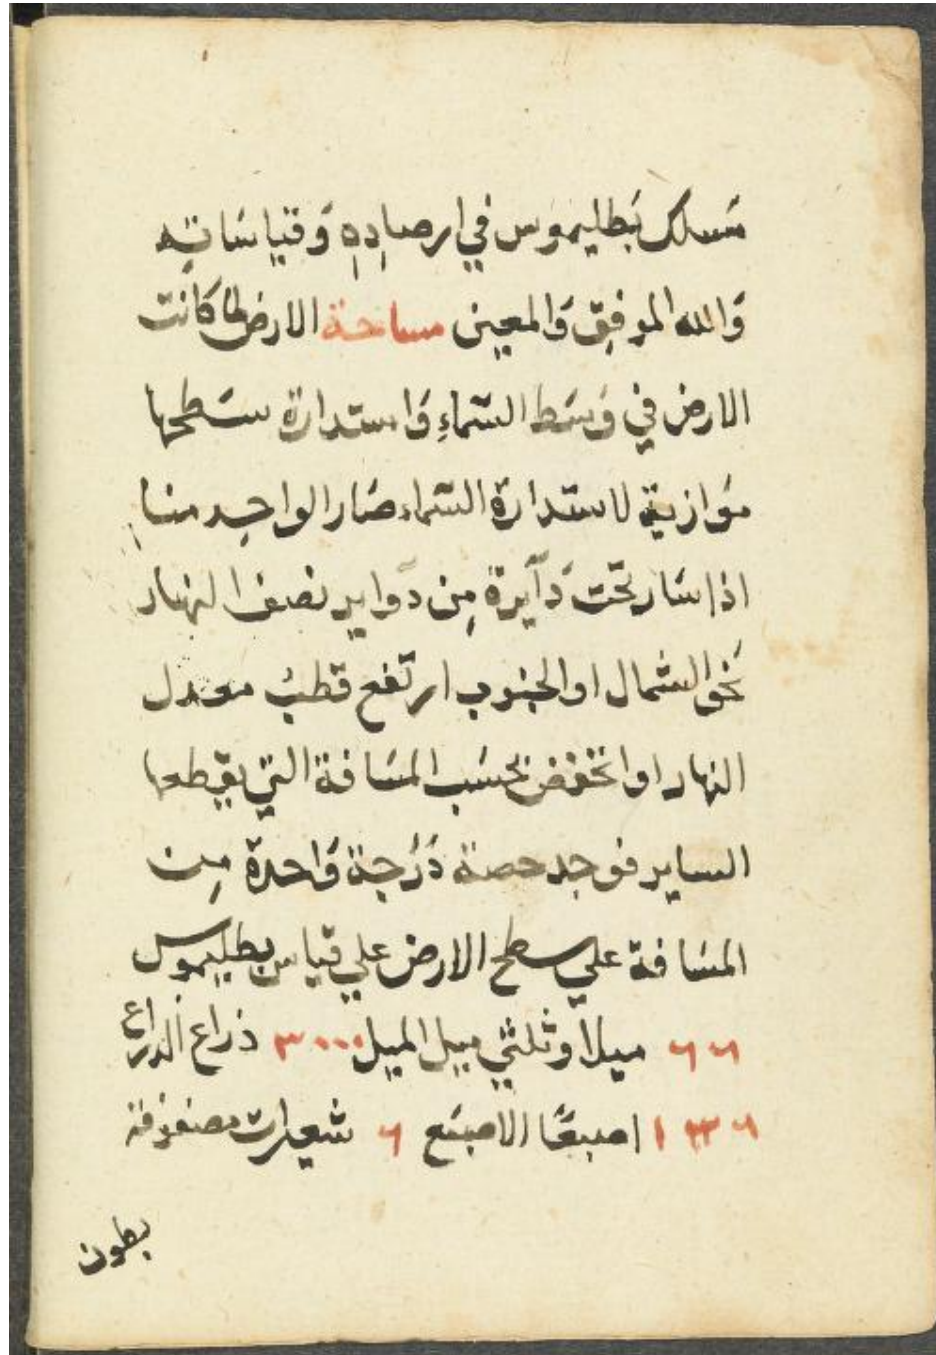 مَسلك بَطليموس في ارصادِهِ وَقياسَاتِه
وَالله الموفِق وَالمعين مساحة الارض لما كانت
الارض في وَسَط السَّماءِ وَاستدارة سَطحها
موَازية لاستدارة السَّماء صَار الواحِد منا
اذا سَار تحت دَآيرة مِن دوَاير نصف النهار
نحو الشمال او الجنوب ارتفع قطبُ معدل
النهار او انخفض بحسَب المسَافة التي يقطعها
الساير فوجد حصة دَرَجة وَاحدة مِن
المسَافة علي سطح الارض علي قياس بطليموس
٦٦ ميلاً وثلثي ميل الميل ٣٠٠٠ ذراع الذراع
اصبعًا الاصبَع ٦ شعيرات مصفوفة
بطون